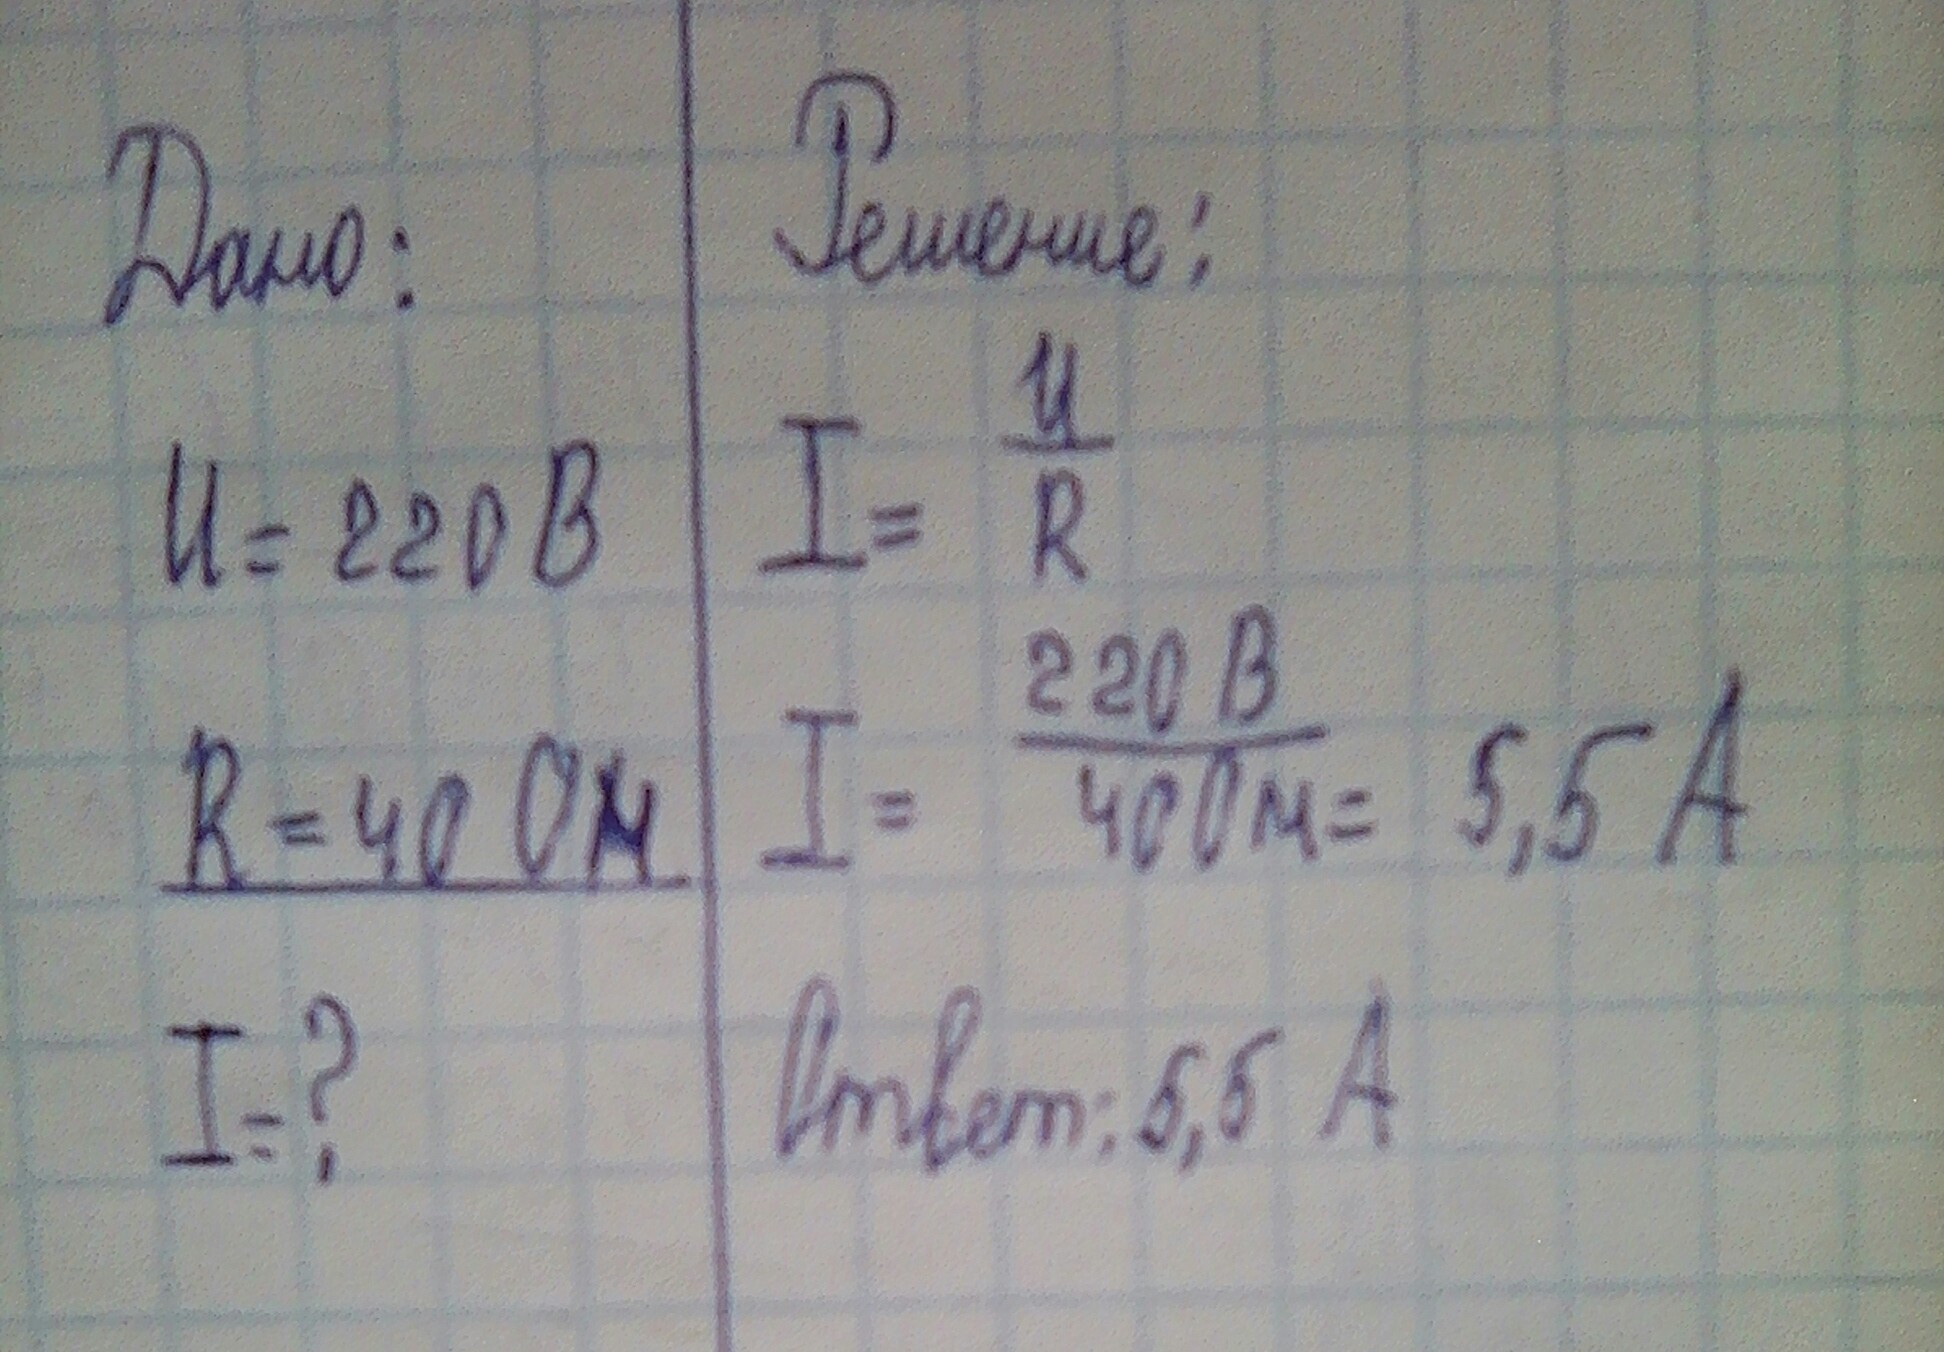 Дано:
U = 220 В
R = 40 Ом
I = ?
Решение:
I = U/R
I = 220 В/40 Ом = 5,5 А
Ответ: 5,5 А